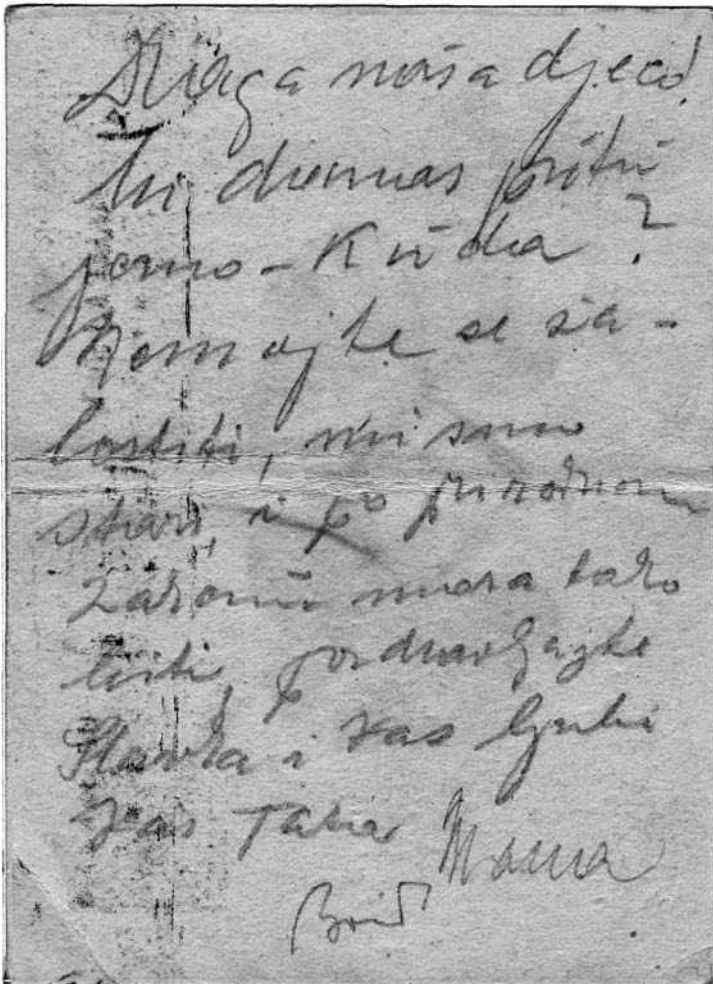 Draga naša djeco!
Mi danas putu
jemo - Kuda?
Nemojte se ža-
lostiti, mi smo
stari, i po prirodnom
zakonu mora tako
biti, pozdravljajte
Slavka i Vas ljubi
Vas Tata Mama